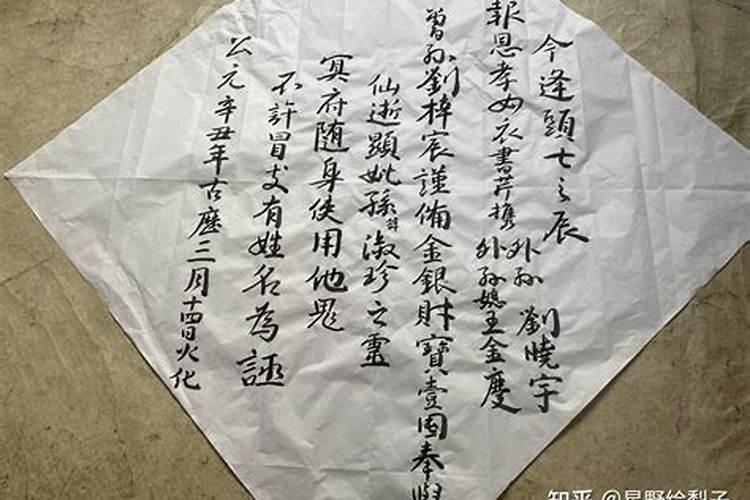 今逢頭七之辰
外孙 劉曉宇
報恩孝女衣書芹携 外孙媳王金慶
曾孙劉梓宸謹俻金銀財寶壹困奉與
仙逝顯妣孫諱淑珍之靈
冥府随身使用他鬼
不許冒支有姓名為誣
公元辛丑年古歷三月十四日火化
知乎 @星野绘梨子